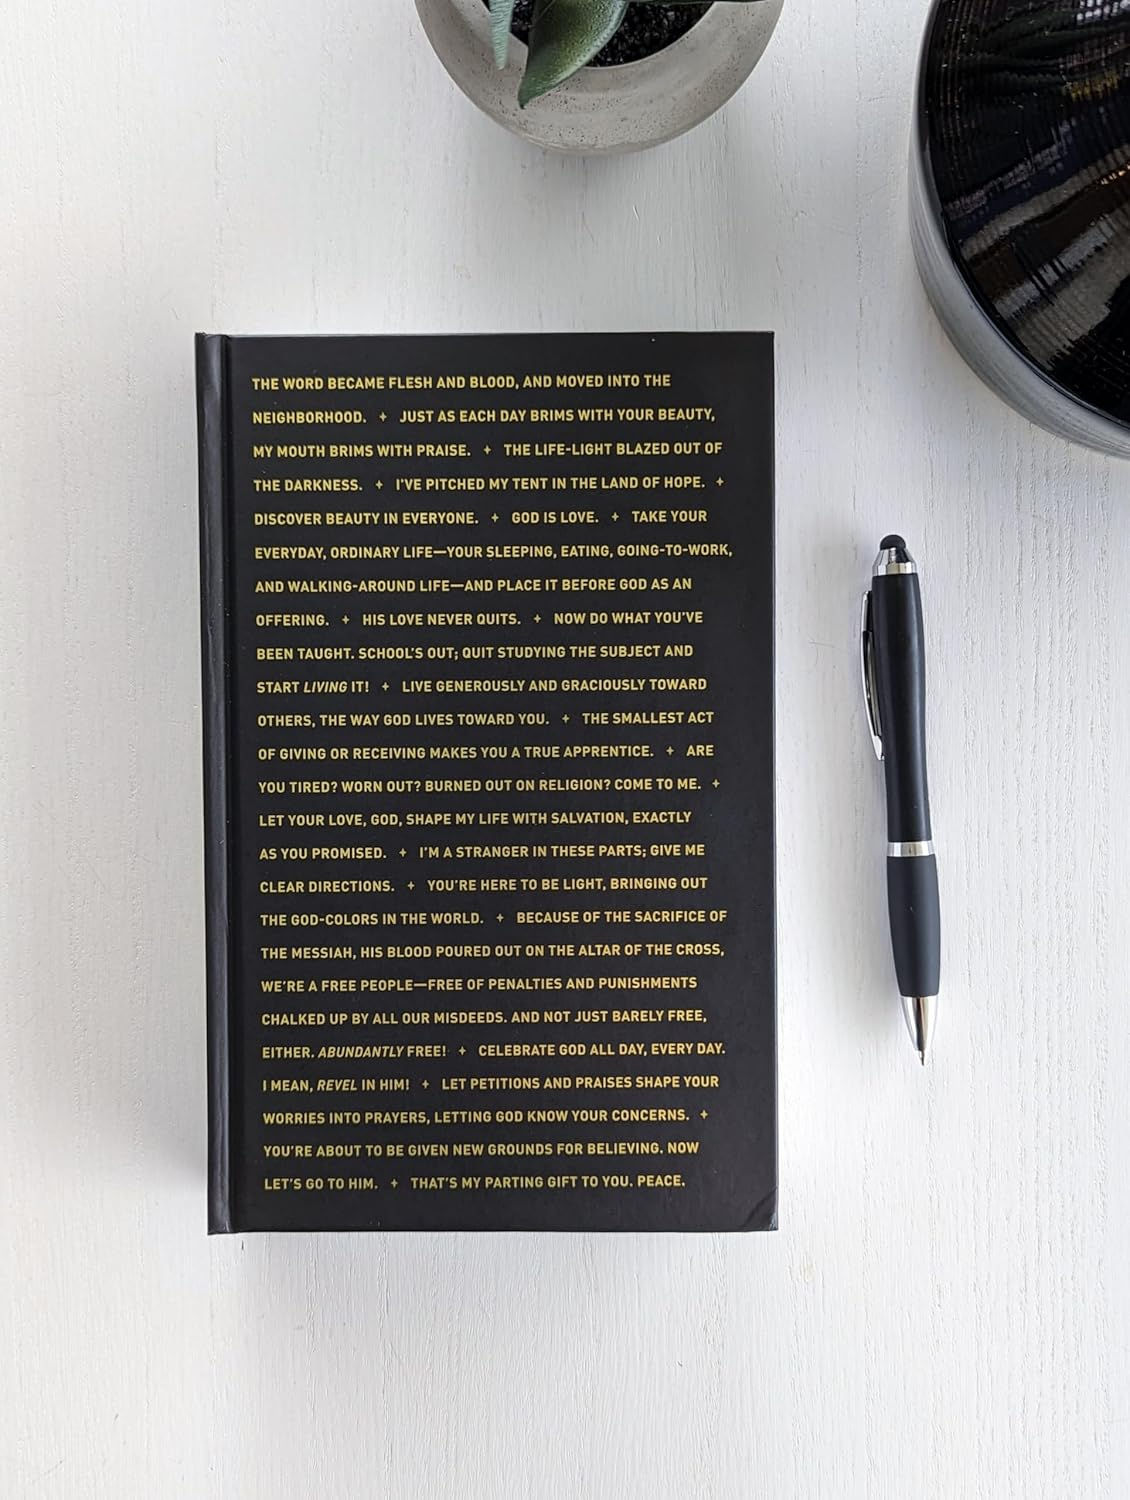 THE WORD BECAME FLESH AND BLOOD, AND MOVED INTO THE
NEIGHBORHOOD. + JUST AS EACH DAY BRIMS WITH YOUR BEAUTY,
MY MOUTH BRIMS WITH PRAISE. + THE LIFE-LIGHT BLAZED OUT OF
THE DARKNESS. + I'VE PITCHED MY TENT IN THE LAND OF HOPE. +
DISCOVER BEAUTY IN EVERYONE. + GOD IS LOVE. + TAKE YOUR
EVERYDAY, ORDINARY LIFE—YOUR SLEEPING, EATING, GOING-TO-WORK,
AND WALKING-AROUND LIFE—AND PLACE IT BEFORE GOD AS AN
OFFERING. + HIS LOVE NEVER QUITS. + NOW DO WHAT YOU'VE
BEEN TAUGHT. SCHOOL'S OUT; QUIT STUDYING THE SUBJECT AND
START LIVING IT! + LIVE GENEROUSLY AND GRACIOUSLY TOWARD
OTHERS, THE WAY GOD LIVES TOWARD YOU. + THE SMALLEST ACT
OF GIVING OR RECEIVING MAKES YOU A TRUE APPRENTICE. + ARE
YOU TIRED? WORN OUT? BURNED OUT ON RELIGION? COME TO ME. +
LET YOUR LOVE, GOD, SHAPE MY LIFE WITH SALVATION, EXACTLY
AS YOU PROMISED. + I'M A STRANGER IN THESE PARTS; GIVE ME
CLEAR DIRECTIONS. + YOU'RE HERE TO BE LIGHT, BRINGING OUT
THE GOD-COLORS IN THE WORLD. + BECAUSE OF THE SACRIFICE OF
THE MESSIAH, HIS BLOOD POURED OUT ON THE ALTAR OF THE CROSS,
WE'RE A FREE PEOPLE—FREE OF PENALTIES AND PUNISHMENTS
CHALKED UP BY ALL OUR MISDEEDS. AND NOT JUST BARELY FREE,
EITHER. ABUNDANTLY FREE! + CELEBRATE GOD ALL DAY, EVERY DAY.
I MEAN, REVEL IN HIM! + LET PETITIONS AND PRAISES SHAPE YOUR
WORRIES INTO PRAYERS, LETTING GOD KNOW YOUR CONCERNS. +
YOU'RE ABOUT TO BE GIVEN NEW GROUNDS FOR BELIEVING. NOW
LET'S GO TO HIM. + THAT'S MY PARTING GIFT TO YOU. PEACE.